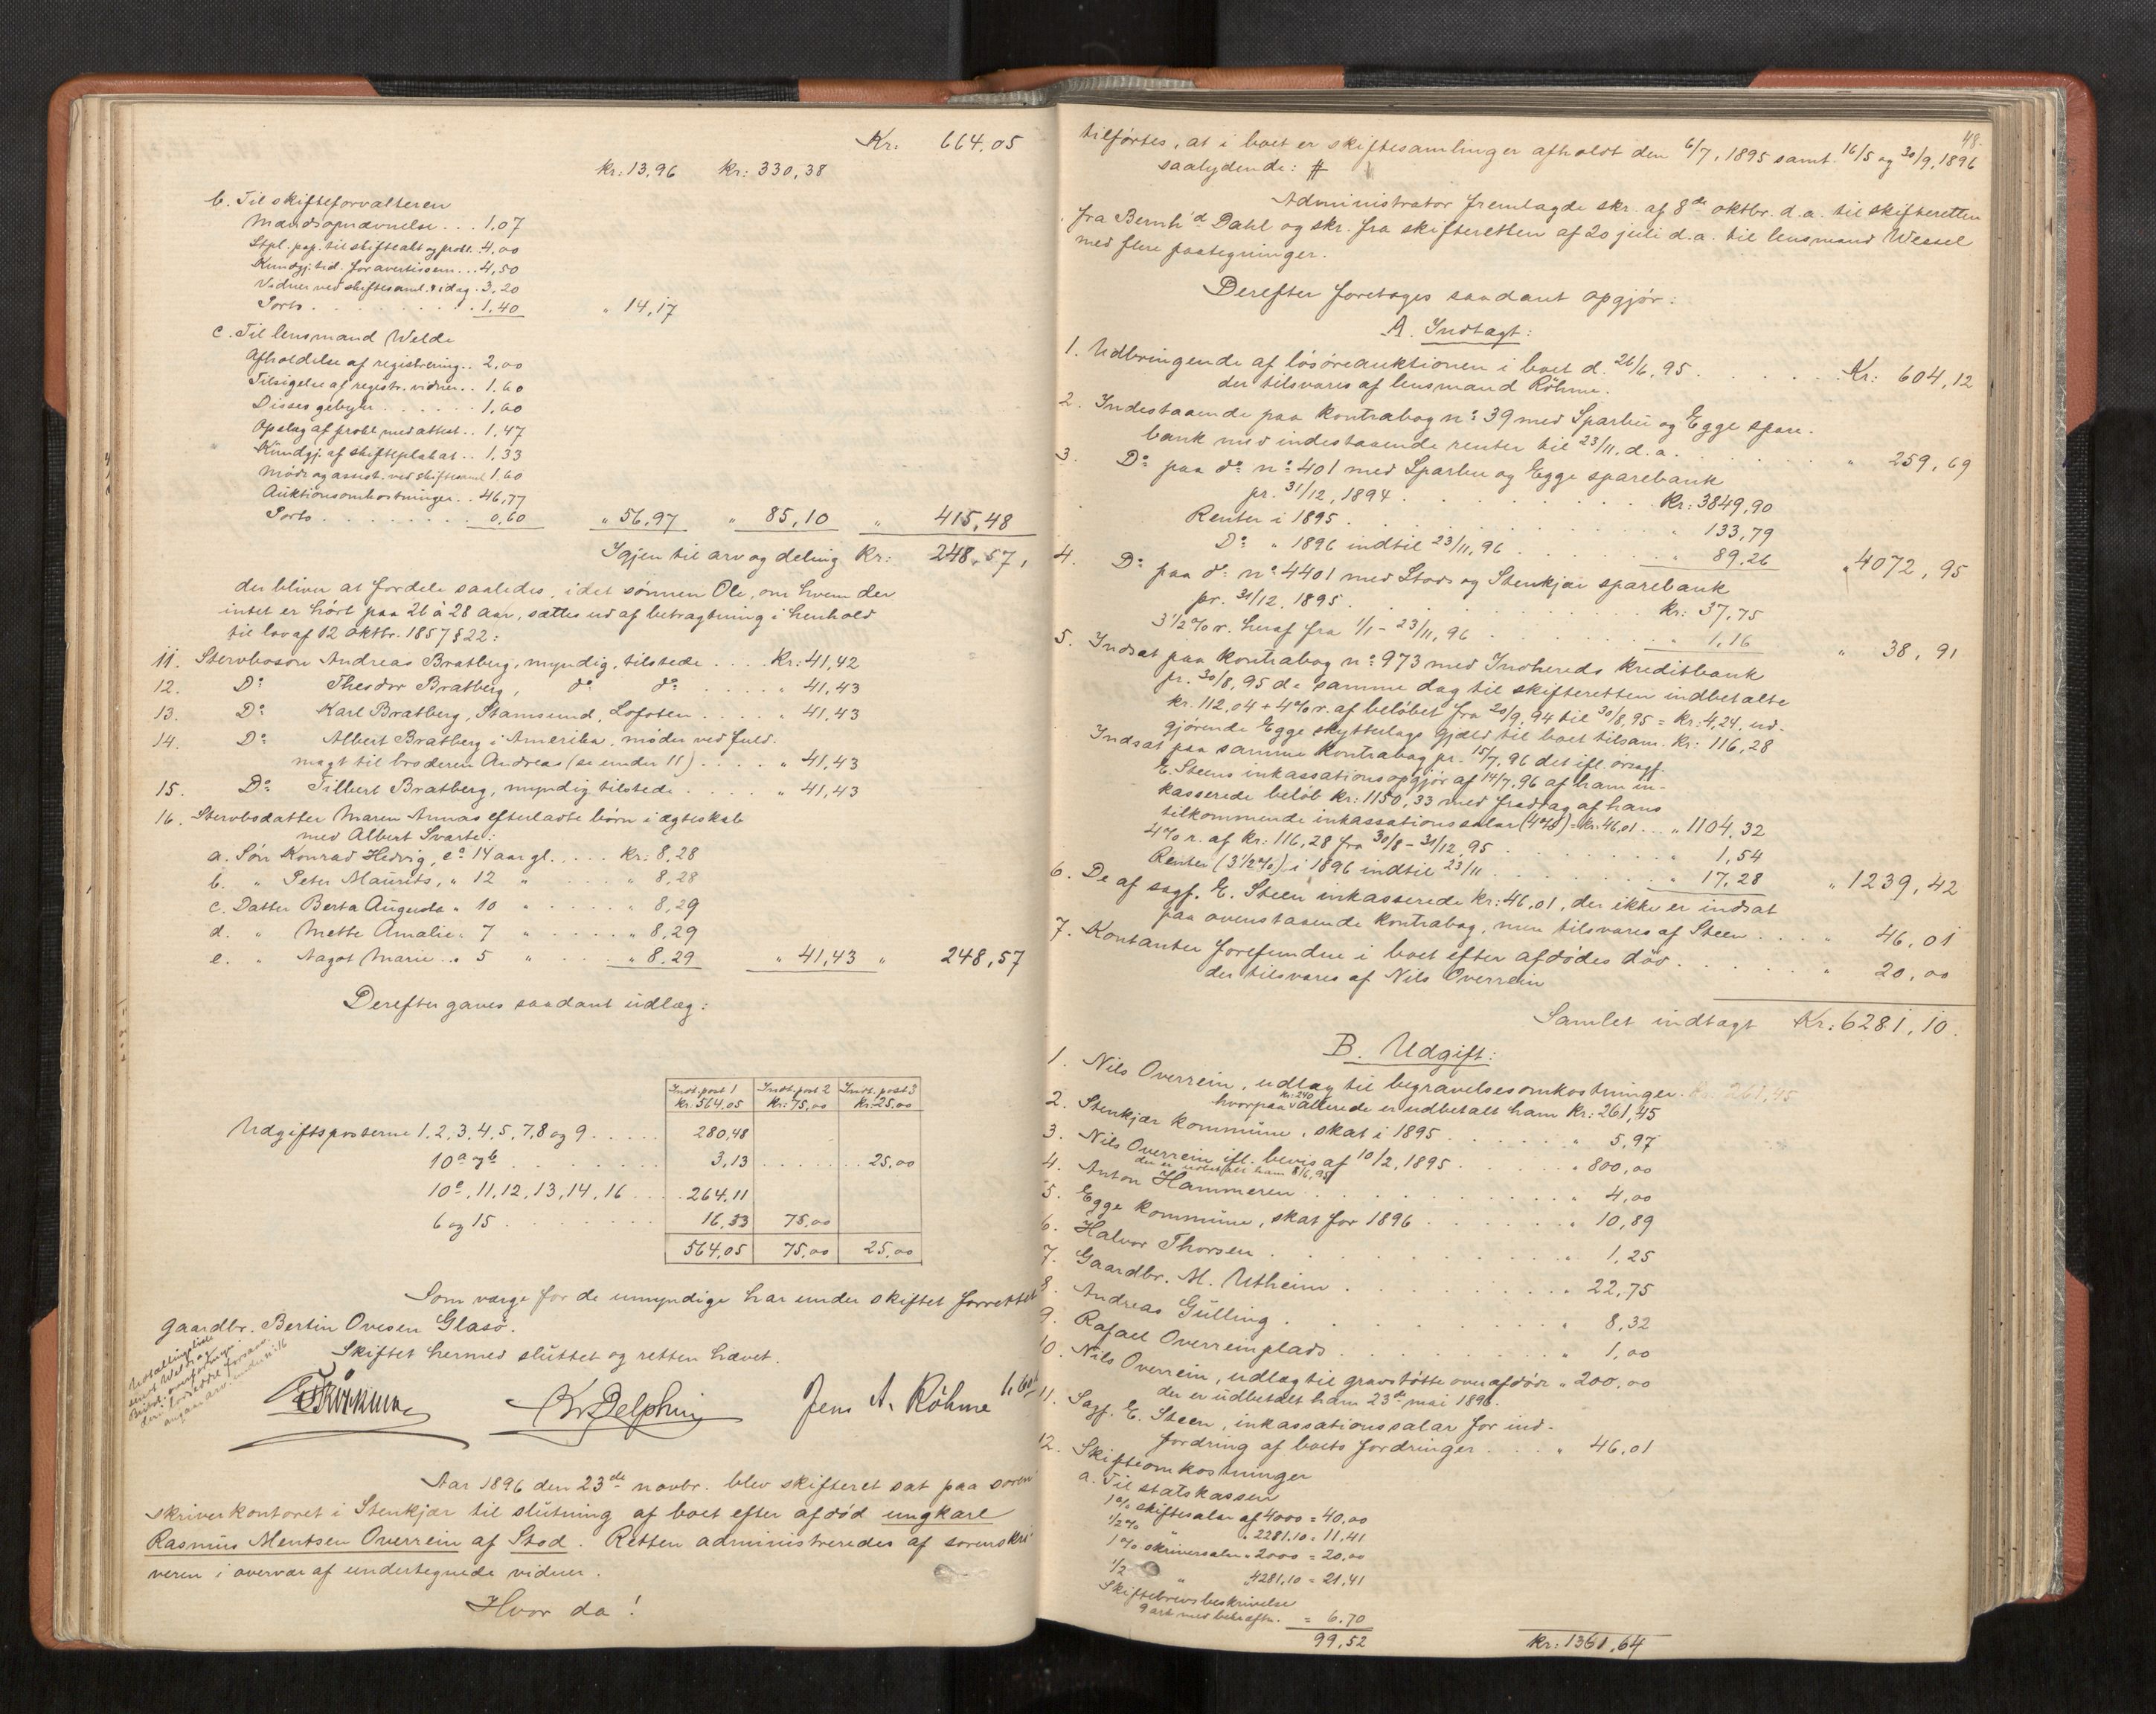 Kr: 664.05
kr: 13,96 kr: 330,38
b. Til skifteforvalteren
Mændsopnævnelse . . . 1,07
Stpl. pap. til skifteakt og protk. 4,00
Kundgj. tid. for avertissem. . . 4,50
Vidner ved skiftesaml. & idag . 3,20
Porto . . . . . . . . . 1,40 " 14,17
c. Til lensmand Welde
Afholdelse af registrering . . 2,00
Tilsigelse af registr. vidner . . 1,60
Disses gebyhr . . . . . . 1,60
Opslag af prokl. med attest . . 1,47
Kundgj. af skifteplakat . . 1,33
Møde og assist. ved skiftesaml 1,60
Auktionsomkostninger . . 46,77
Porto . . . . . . . . . 0,60 " 56,97 " 85,10 " 415,48
Igjen til arv og deling Kr: 248,57,
der bliver at fordele saaledes, idet sønnen Ole, om hvem der
intet er hørt paa 26 à 28 aar, sættes ud af betragtning i henhold
til lov af 12 oktbr. 1857 § 22:
11. Stervbosøn Andreas Bratberg, myndig, tilstede . . . . Kr: 41,42
12. Do Theodor Bratberg, do do . . . . . " 41,43
13. Do Karl Bratberg, Stamsund, Lofoten . . . . " 41,43
14. Do Albert Bratberg i Amerika, møder ved fuld-
magt til broderen Andreas (se under 11) . . . . " 41,43
15. Do Tilbert Bratberg, myndig, tilstede . . . . " 41,43
16. Stervbodatter Maren Annas efterladte børn i ægteskab
med Albert Svarte:
a. Søn Konrad Hedvig, ca 14 aar gl. . . . . Kr: 8,28
b. " Peter Maurits, " 12 " . . . . " 8,28
c. Datter Berta Augusta " 10 " . . . . " 8,29
d. " Mette Amalie " 7 " . . . . " 8,29
e. " Nagot Marie . " 5 " . . . " 8,29 " 41,43 " 248,57
Derefter gaves saadant udlæg:
Indt. post 1 Indt. post 2 Indt. post 3
kr. 564,05 Kr: 75,00 Kr: 25,00
Udgiftsposterne 1, 2, 3, 4, 5, 7, 8 og 9 . . . . . 280,48
10a og b . . . . . . . 3,13 . . . . . . 25,00
10c, 11, 12, 13, 14, 16 . . . . 264,11
6 og 15 . . . . . . . 16,33 75,00
564,05 75,00 25,00
Som værge for de umyndige har under skiftet forrettet
gaardbr. Bertin Ovesen Glasø.
Skiftet hermed sluttet og retten hævet.
K. Delphin Jens A. Röhme
Aar 1896 den 23de novbr. blev skifteret sat paa soren-
skriverkontoret i Stenkjær til slutning af boet efter afdød ungkarl
Rasmus Mentsen Overrein af Stod. Retten administreredes af sorenskri-
veren i overvær af undertegnede vidner.
Hvor da!
48.
tilførtes, at i boet er skiftesamlinger afholdt den 6/7, 1895 samt 16/5 og 30/9, 1896
saalydende: #
Administrator fremlagde skr. af 8de oktbr. d.a. til skifteretten
fra Bernhd Dahl og skr. fra skifteretten af 20 juli d.a. til lensmand Wessel
med flere paategninger.
Derefter foretoges saadant opgjør:
A. Indtægt:
1. Udbringende af løsøreauktionen i boet d. 26/6, 95 . . . . . . Kr: 604,12
der tilsvares af lensmand Röhme.
2. Indestaaende paa kontrabog no 39 med Sparbu og Egge spare-
bank med indestaaende renter til 23/11, d.a. . . . . . . " 259,69
3. Do paa do no 401 med Sparbu og Egge sparebank
pr. 31/12, 1894 . . . . . . . Kr: 3849,90
Renter i 1895 . . . . . . . " 133,79
Do " 1896 indtil 23/11, 96 . . . . . " 89,26 " 4072,95
4. Do paa do no 4401 med Stods og Stenkjær sparebank
pr. 31/12, 1895 . . . . . . . Kr: 37,75
3 1/2 % r. heraf fra 1/1 - 23/11, 96 . . . . . " 1,16 " 38,91
5. Indsat paa kontrabog no 973 med Indhereds kreditbank
pr. 30/8, 95 de samme dag til skifteretten indbetalte
kr. 112,04 + 4% r. af beløbet fra 20/9, 94 til 30/8, 95 = Kr: 4,24, ud-
gjørende Egge skytterlags gjæld til boet tilsam. Kr: 116,28
Indsat paa samme kontrabog pr. 15/7, 96 det ifl. orsagf.
E. Steens inkassationsopgjør af 14/7, 96 af ham in-
kasserede beløb Kr: 1150,33 med fradrag af hans
tilkommende inkassationssalær (4%) = Kr: 46,01 . . . " 1104,32
4% r. af Kr: 116,28 fra 30/8 - 31/12, 95 . . . . . " 1,54
Renter (3 1/2 %) i 1896 indtil 23/11 . . . . . " 17,28 " 1239,42
6. De af sagf. E. Steen inkasserede Kr: 46,01, der ikke er indsat
paa ovenstaaende kontrabog, men tilsvares af Steen . . . . " 46,01
7. Kontanter forefundne i boet efter afdødes død . . . . . . " 20,00
der tilsvares af Nils Overrein
Samlet indtægt Kr: 6281,10.
B. Udgift:
1. Nils Overrein, udlæg til begravelsesomkostninger.
hvorpaa kr: 240 allerede er udbetalt ham Kr: 261,45
2. Stenkjær kommune, skat i 1895 . . . . . . " 5,97
3. Nils Overrein ifl. bevis af 10/2, 1895 . . . . . " 800,00
der er udbetalt ham 8/6, 95
4. Anton Hammeren . . . . . . . . . " 4,00
5. Egge kommune, skat for 1896 . . . . . . " 10,89
6. Halvor Thorsen . . . . . . . . . " 1,25
7. Gaardbr. M. Utheim . . . . . . . . " 22,75
8. Andreas Gulling . . . . . . . . . " 8,32
9. Rafael Overreinplads . . . . . . . " 1,00
10. Nils Overrein, udlæg til gravstøtte over afdøde " 200,00
der er udbetalt ham 23de mai 1896.
11. Sagf. E. Steen, inkassationssalær for ind-
fordring af boets fordringer . . . . " 46,01
12. Skifteomkostninger
a. Til statskassen
1% skiftesalær af 4000 = 40,00
1/2% " " 2281.10 = 11.41
1% skriversalær " 2000 = 20,00
1/2 " " 4281,10 = 21,41
Skiftebrevsbeskrivelse
9 ark med bekræftn. = 6.70
99,52 Kr: 1361,64